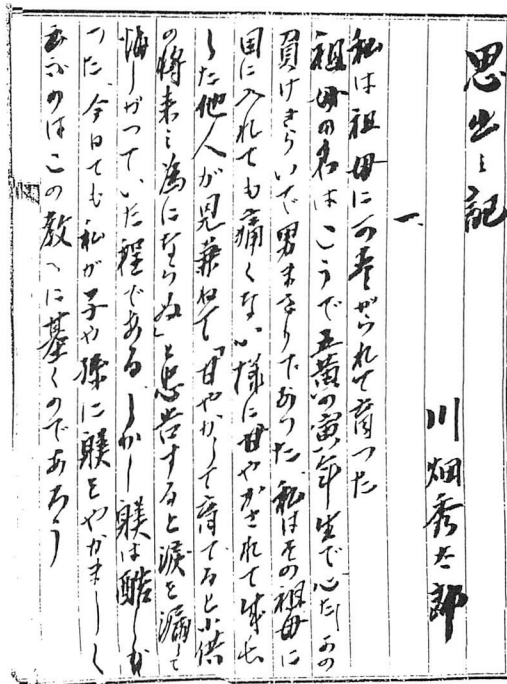 思出之記
川畑秀太郎
一、
私は祖母に可愛がられて育つた
祖母の名はこうで五黄の寅年生で
負けきらいで男まさりであつた 私はその祖母に
目に入れても痛くない様に甘やかされて成長
した 他人が見兼ねて「甘やかして育てると小供
の将来之為にならぬ」と忠告すると涙を漏して
悔しがつていた程である しかし躾は酷しか
つた 今日でも私が子や孫に躾をやかましく
云ふのはこの教へに基くのであろう